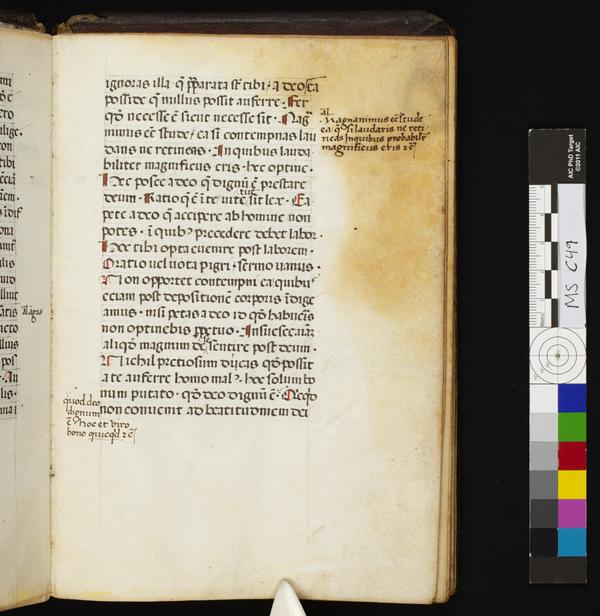 ignoras illa · q̄ p̄parata st̄ tibi · a deo · ea
posside q̄ nullus possit auferre · Fer
qđ necesse ē sicut necesse sit · Mag
nimus ēē stude · ea si contempnas lau
dans ne retineas · In quibus lauda
biliter magnificus eris · hec optine ·
Hec posce a deo q̄ dignū ē prestare
deum · Ratio q̄ ī te vite tue sit lex · Ea
pete a deo q̄ accipere ab homine non
potes · ī quibꝫ precedere debet labor ·
Hec tibi opta evenire post laborem ·
Oratio vel vota pigri · sermo vanus ·
Non opportet contempni ea quibus
eciam post depositionē corporis īdige
amus · nisi petas a deo id qđ habueris
non optinebis perpetuo · Insuesce
aliqđ magnum de te sentire post deum ·
Nichil pretiosum ducas qđ possit
a te auferre homo malꝰ · hec solum bo
num putato · qđ deo dignū ē · Quicqđ
non convenit ad beatitudinem dei
al
Magnanimus ēē stude
ea · q̄ si laudaris ne reti
neas In quibus probabilr̄
magnificus eris
quod deo
dignum
ē hoc et viro
bono quicqđ
MS C49
AIC PhD Target
©2011 AIC